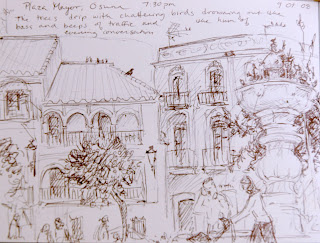 Plaza Mayor, Osuna 7.30 pm 7 07 08
the trees drip with chattering birds drowning out the
bass and beeps of traffic and the hum of
evening conversation